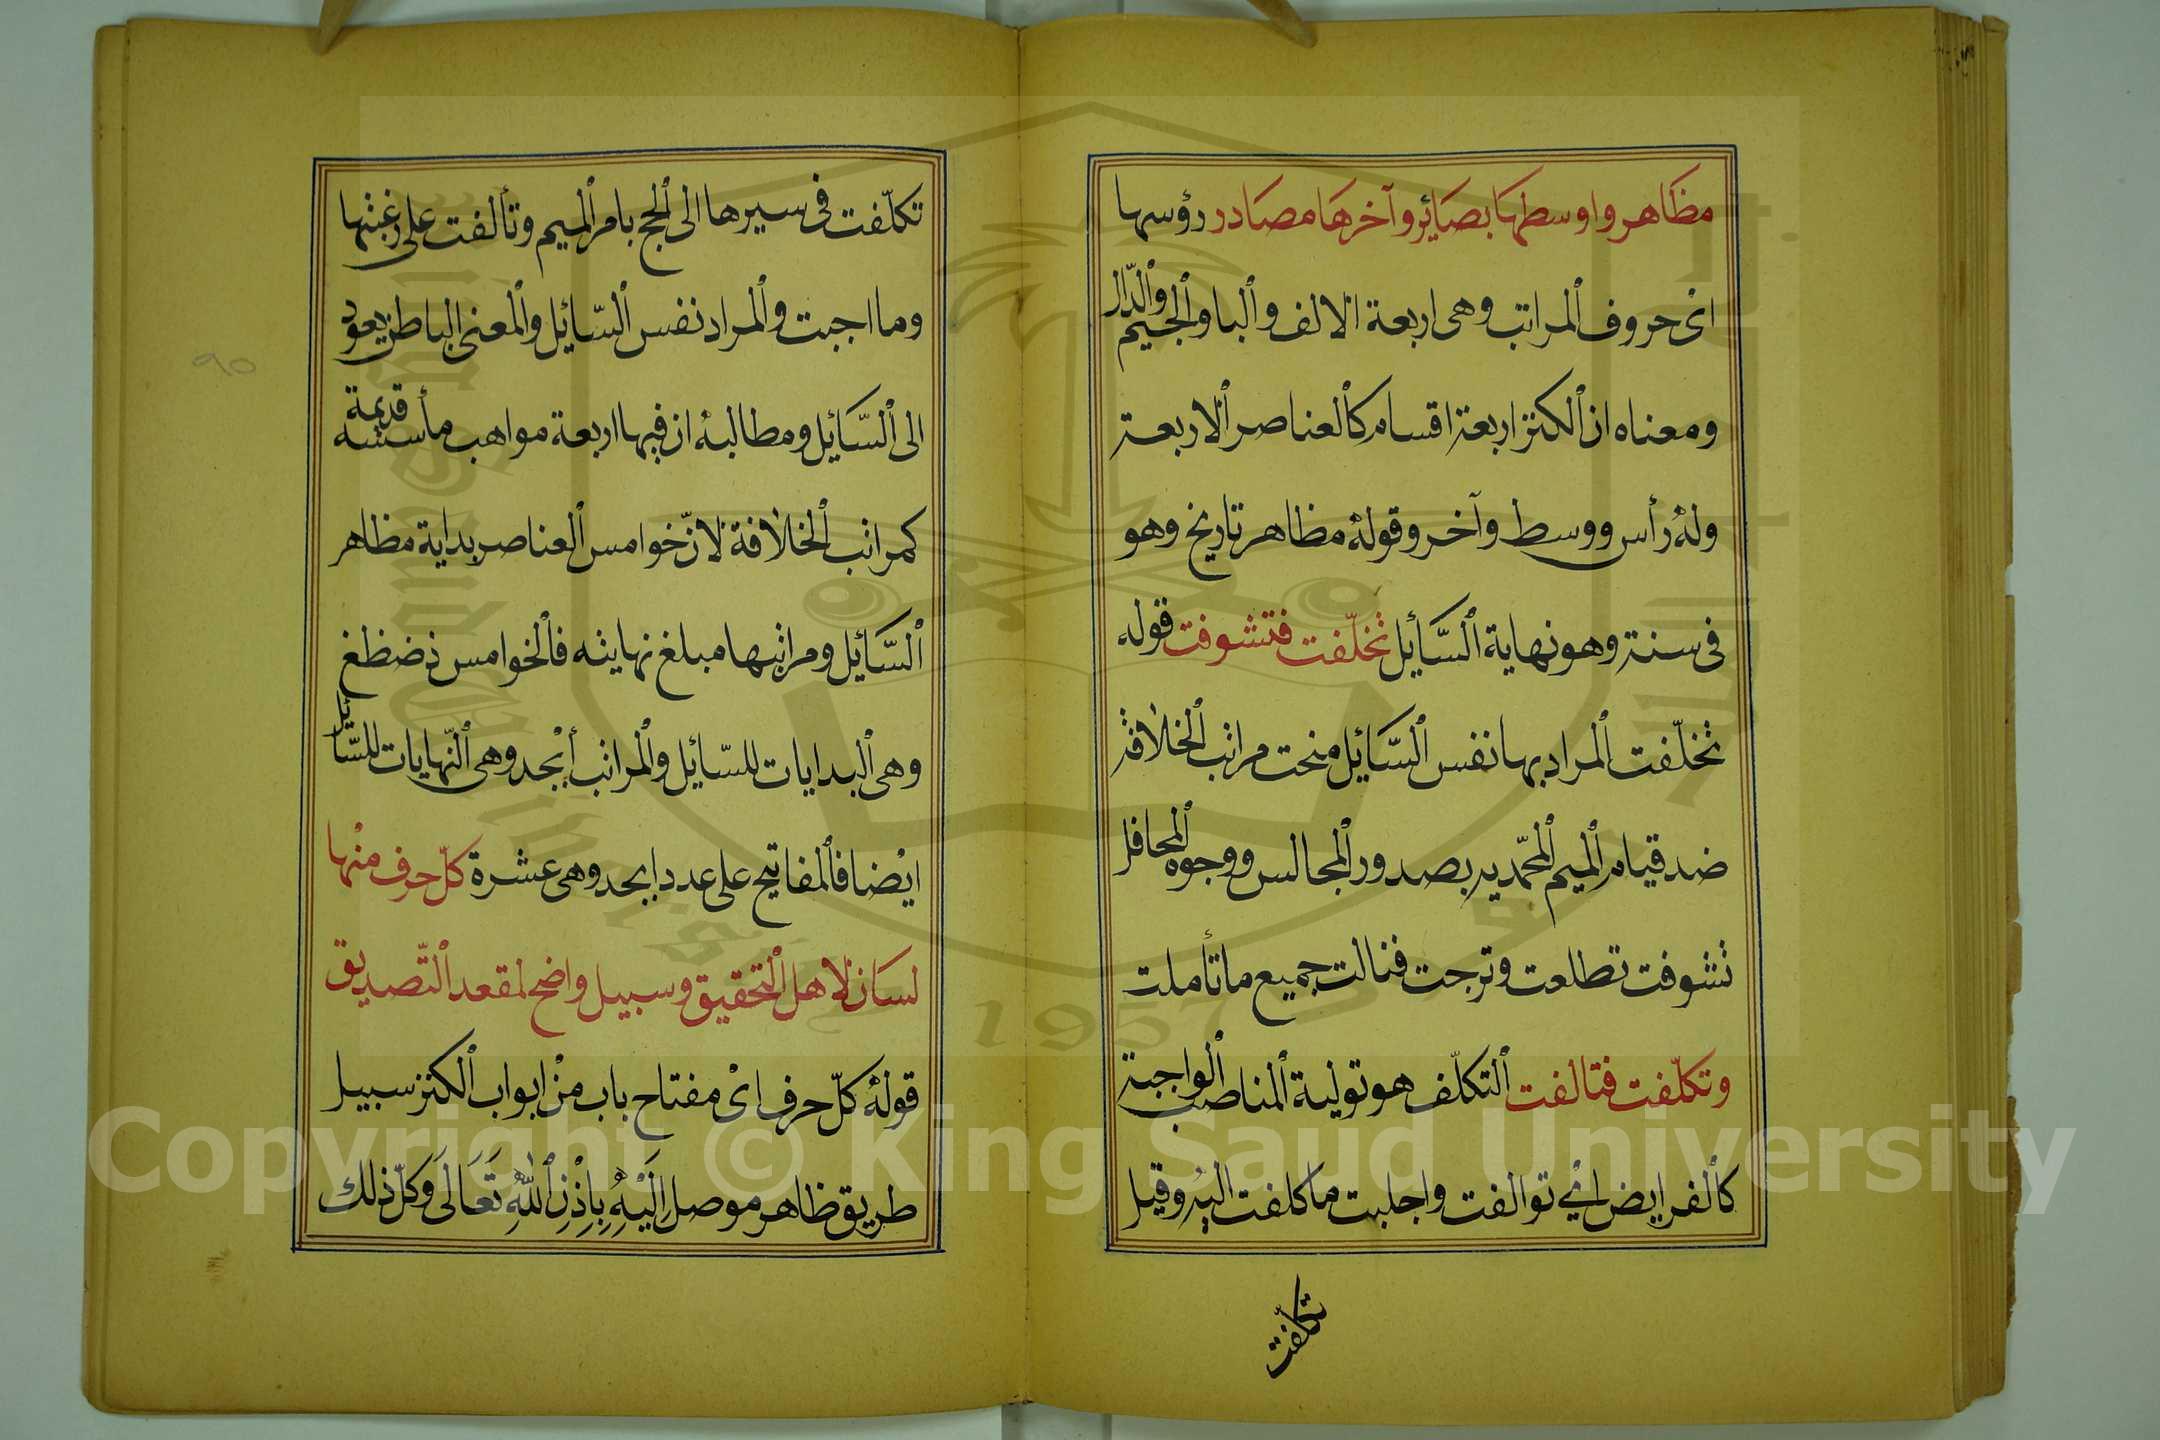 مظاهر واوسطها بصاير وآخرها مصادر رؤسها
اىْ حروف ٱلمراتب وهى اربعة الالف وٱلبا وٱلجيم وٱلدّال
ومعناه ان ٱلكنز اربعة اقسام كٱلعناصر ٱلاربعة
ولهُ رأس ووسط وآخر وقولهُ مظاهر تاريخ وهو
فى سنة وهو نهاية ٱلسَّائِل تخلّفت فتشوفت قوله
تخلّفت ٱلمراد بها نفس ٱلسَّائِل منحت مراتب ٱلخلافة
ضد قيام ٱلميم ٱلمحمّدية بصدور ٱلمجالس ووجوه ٱلمحافل
تشوفت تطلعت وترجت فنالت جميع ما تأملت
وتكلّفت فتالفت ٱلتكلّف هو تولية ٱلمناصب ٱلواجبة
كٱلفرايض اىْ توالفت واجلبت ما كلفت اليه وقيل
تكلّفت
تكلّفت فى سيرها الى ٱلحج بامر ٱلميم وتألفت على رغبتها
وما اجبت وٱلمراد نفس ٱلسّائِل وٱلمعنى ٱلباطن يعود
الى ٱلسَّائِل ومطالبهُ ان فيها اربعة مواهب مأسسه قديمة
كمراتب ٱلخلافة لانّ خوامس ٱلعناصر بداية مظاهر
ٱلسَّائِل ومراتبها مبلغ نهايته فٱلخوامس ذضظغ
وهى ٱلبدايات للسّائِل وٱلمراتب أبْجد وهى ٱلنّهايات للسّائِل
ايْضا فٱلمفاتيح على عدد ابجد وهى عشرة كلّ حرف منْها
لسان لاهل ٱلتحقيق وسبيل واضح لمقعد ٱلتّصديق
قولهُ كلّ حرف اىْ مفتاح باب منْ ابواب ٱلكنز سبيل
طريق ظاهر موصل اِلَيْهِ بِاِذْنِ ٱللّهِ تَعَالَى وكلّ ذلك
٩٥
Copyright © King Saud University
1957